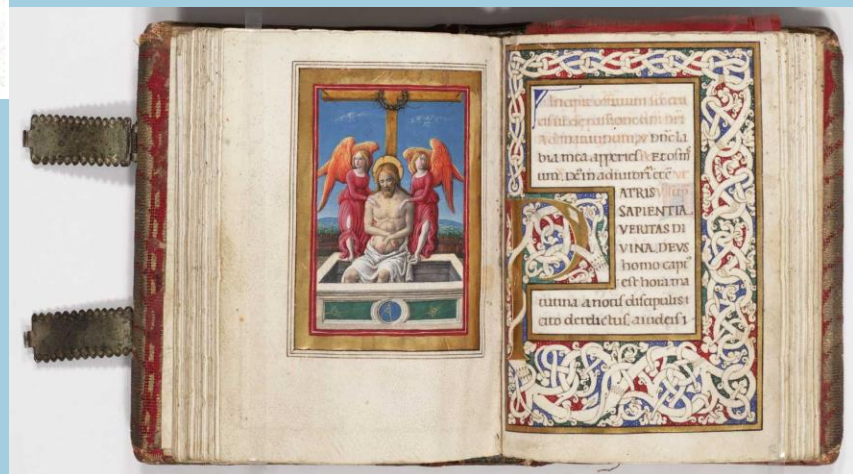 Incipit officium sce cru
cis ut de passione dni nri
Ad matutinum Dñe la
bia mea apperies Et os m̃
um. Dẽ in adiutoriũ etc̃
PATRIS
SAPIENTIA
VERITAS DI
VINA. DEVS
homo capt
est hora ma
tutina a notis discipulis
cito derelictus, a iudeis